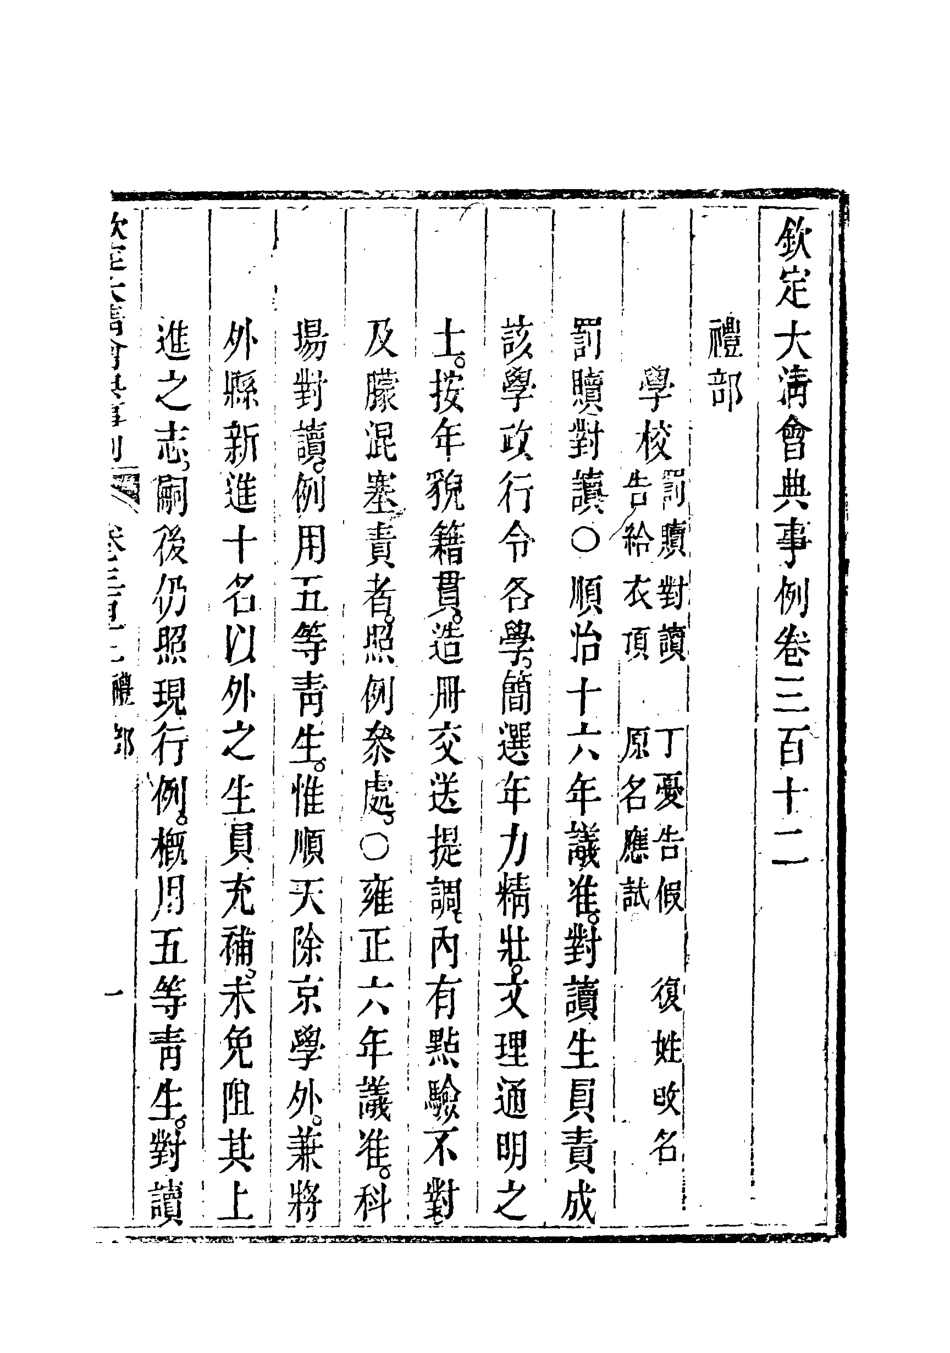 欽定大淸會典事例卷三百十二
禮部
學校罰贖對讀 丁憂告假 復姓改名
告給衣頂 原名應試
罰贖對讀○順治十六年議准。對讀生員責成
該學政行令各學。簡選年力精壯。文理通明之
士。按年貌籍貫。造冊交送提調。內有點驗不對
及朦混塞責者。照例叅處。○雍正六年議准。科
場對讀。例用五等靑生。惟順天除京學外。兼將
外縣新進十名以外之生員充補。未免阻其上
進之志。嗣後仍照現行例。槪用五等靑生。對讀
欽定大淸會典事例 卷三百十二 禮部 一